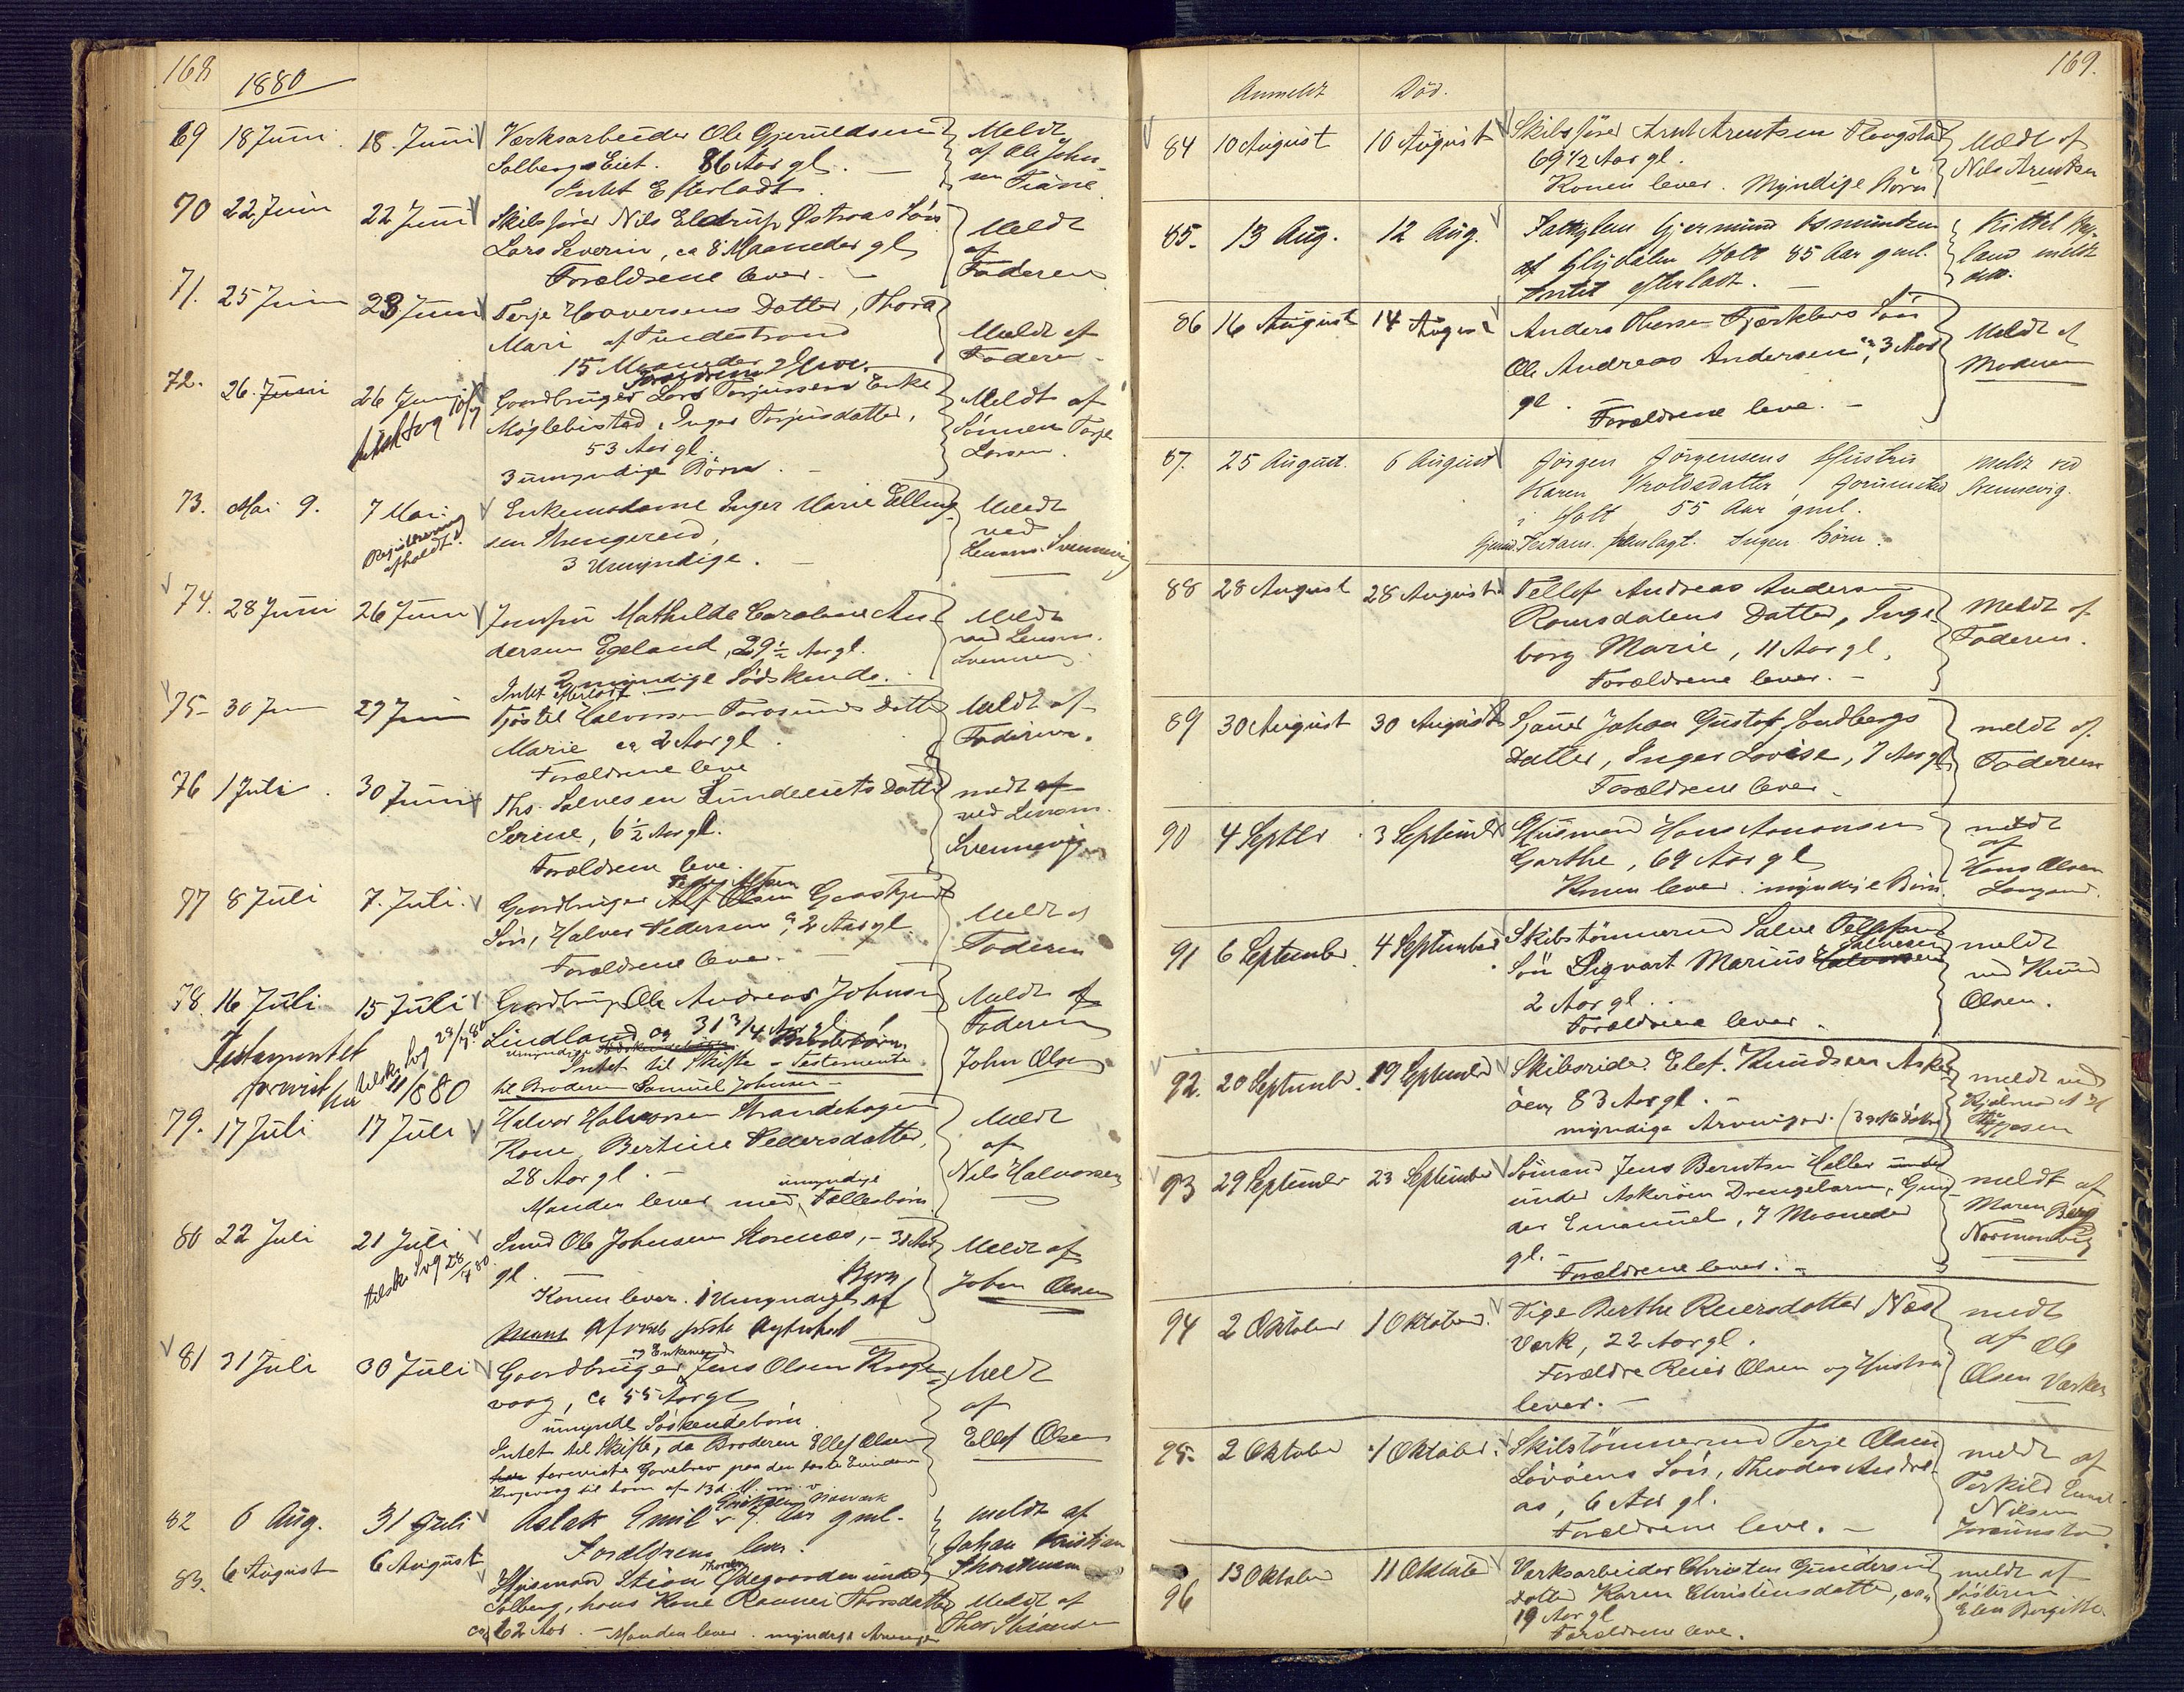 168
1880
69 18 Juni 18. Juni Værksarbeider Ole Gjeruldsen
Solbergs Eiet. 86 Aar gl. —
Intet Efterladt.
Meldt
af Ole John
sen
70 22 Juni 22 Juni Skibsfører Nils Eldrup Østraas Søn
Lars Severin, ca 8 Maaneder gl
Forældrene lever. —
Meldt
af
Faderen
71. 25 Juni 23 Juni Terje Haaversens Datter, Thora
Mari af
15 Maaneder gl
Forældrene leve.
Meldt af
Faderen
72. 26. Juni 26 Juni Gaardbruger Lars Torjussens Enke
Møglebustad, Inger Torjusdatter,
53 Aar gl.
3 umyndige Børn. —
Meldt af
Sønnen Torje
Larsen.
73. Mai 9. 7 Mai. Enkemadame Inger Marie Elling
sen Strengereid,
3 Umyndige. —
Registrering
afholdt
Meldt
ved
Lensm. Svennevig
74. 28 Juni 26 Juni Jomfru Mathilde Caroline An
dersen Egeland, 29½ Aar gl.
2 myndige Sødskende.
Intet efterladt. —
Meldt
ved Lensm.
75 30 Juni 29 Juni Tjøstel Halvorsen Datter
Marie ca 2 Aar gl.
Forældrene leve
Meldt af
Faderen.
76 1 Juli. 30 Juni Ths. Salvesen Lundeeiets Datter
Serine, 6½ Aar gl.
Forældrene leve.
meldt af
ved Lensm.
Svennevig
77 8 Juli 7. Juli. Gaardbruger Alf Olsen
Søn, Halvor Pedersen, 2 Aar gl.
Forældrene lever. —
Meldt af
Faderen
78. 16 Juli 15 Juli Gaardbruger Ole Andreas Johnsen
Lindland ca 31 3/4 Aar gl.
Intet til Skifte – Testamente
til Broderen Samuel Johnsen —
Testamentet
forevist
Meldt af
Faderen
John Olsen
79. 17 Juli 17 Juli Halvor Halvorsen Strandehagen
Kone Bertine Pedersdatter,
28 Aar gl. —
umyndige
Manden lever med Fællesbørn
Meldt
af
Nils Halvorsen
80 22 Juli 21 Juli Smed Ole Johnsen – 31 Aar
gl.
Konen lever. 1 Umyndigt Barn af
første Ægteskab
Meldt af
John Olsen
81 31 Juli 30 Juli og Enkemand
Gaardbruger Jens Olsen Krage
vaag, ca 55 Aar gl
umyndl Søskendebørn.
Intet til Skifte, da Broderen Ellef Olsen
foreviste Gavebrev paa den faste Eiendom
Meldt
af
Ellef Olsen
82 6 Aug. 31 Juli Aslak Emil Aar gml.
Forældrene lever.
meldt af
Johan Kristian
Thorstensen
83. 6 August 6 August Husmand Steian Ødegaarden under
Solberg, hans Kone Ravnei Thorsdatter
ca 62 Aar. — Manden lever. myndige Arvinger
Meldt af
Thor Steiansen
169.
Anmeldt Død.
84 10 August 10 August Skibsfører Arnt Arentsen Flougstad
69½ Aar gl.
Konen lever. Myndige Børn
Meldt af
Nils Arentsen
85. 13 Aug. 12 Aug. Fattiglem Gjermund Osmundsen
af Glipdalen Holt 85 Aar gml.
Intet efterladt. —
Kittel
land meldt
det.
86 16 August 14 August Anders Olsen Fjærkleivs Søn
Ole Andreas Andersen, 3 Aar
gl. —
Forældrene leve. —
Meldt af
Moderen
87. 25 August. 6 August Jørgen Jørgensens Hustru
Karen Aroldsdatter, Goruundstad
i Holt 55 Aar gml.
Gjens. Testam. fremlagt. Ingen Børn.
meldt ved
Svennevig.
88 28 August 28 August Tellef Andreas Andersen
Romsdalens Datter, Inge
borg Marie, 11 Aar gl.
Forældrene lever. —
Meldt af
Faderen.
89 30 August 30 August Sjauer Johan Gustaf Lindbergs
Datter, Inger Lovise, 7 Aar gl
Forældrene lever.
meldt af
Faderen
90 4 Septbr. 3 September Husmand Hans Aanonsen
Garthe, 69 Aar gl
Konen lever. myndige Børn.
meldt
af
Hans Olsen
Langand.
91 6 September 4 September Skibstømmermd Salve Tellefsens
Søn Sigvart Marius Halvorsen Salvesen
2 Aar gl..
Forældrene lever.
meldt
ved Knud
Olsen.
92. 20 September. 19 September Skibsrider. Elef. Knudsen Asker
øen, 83 Aar gl. —
myndige Arvinger.
meldt ved
Hjalmar
Jeppesen
93 29 September 23 September Sømand Jens Berntsen Heller under
under Askerøen Drengebarn, Gun
der Emanuel, 7 Maaneder
gl. —
Forældrene lever. —
meldt af
Maren Berg
Normandvig
94 2 Oktober 1 Oktober. Pige Berthe Reiersdatter Næs
Værk, 22 Aar gl.
Forældre Reier Olsen og Hustru
lever. —
meldt
af Ole
Olsen Værket
95. 2 Oktober 1 Oktober. Skibstømmermd Terje Olsen
Løvøens Søn, Theodor Andre
as, 6 Aar gl.
Forældrene leve. —
meldt af
Terkild
Nilsen
96 13 Oktober 11 Oktober Værksarbeider Christen Gundersens
Datter Karen Christensdatter, ca.
19 Aar gl
Forældrene leve.
meldt af
Søsteren
Elen Birgitte